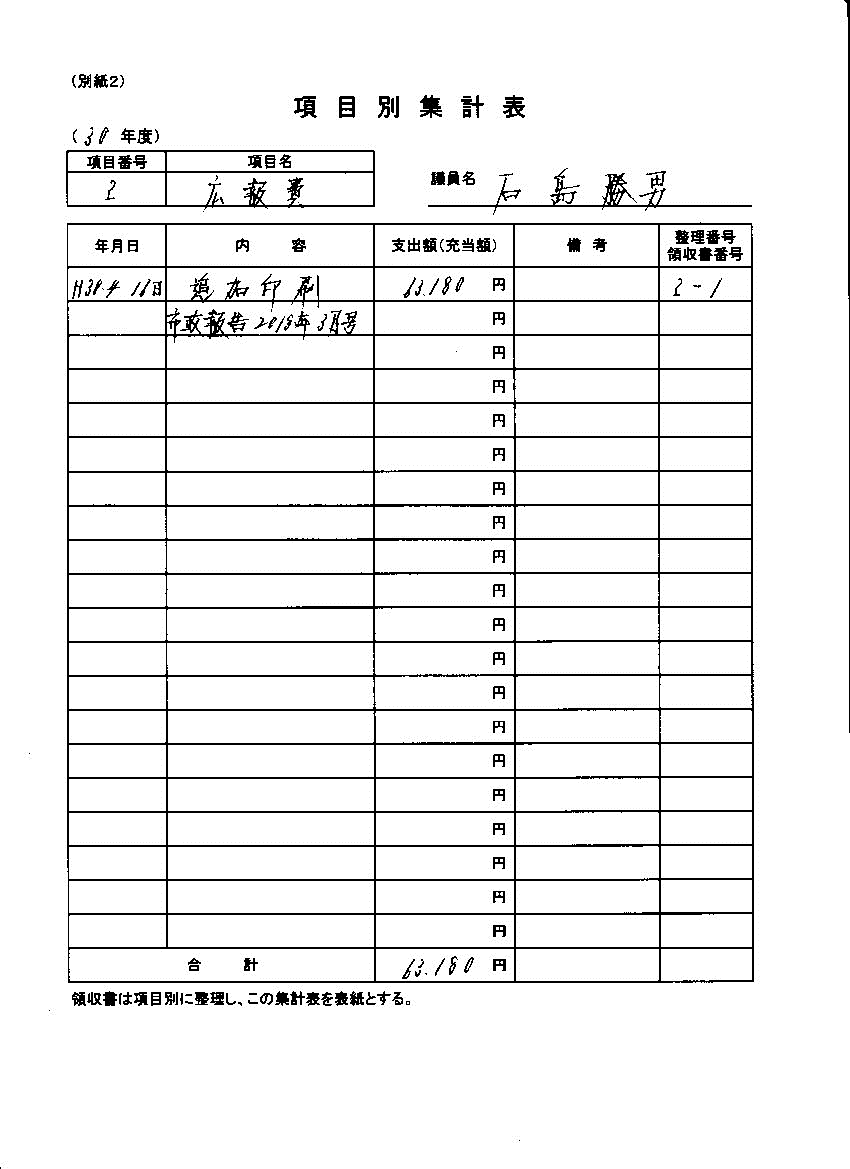 (別紙2)
項目別集計表
(30年度)
項目番号 項目名
2 広報費
議員名 石島勝男
年月日 内容 支出額(充当額) 備考 整理番号 領収書番号
H30.4 16日 追加印刷 63.180 円 2-1
市政報告2018年3月号 円
円
円
円
円
円
円
円
円
円
円
円
円
円
円
円
円
円
円
合計 63.180 円
領収書は項目別に整理し、この集計表を表紙とする。